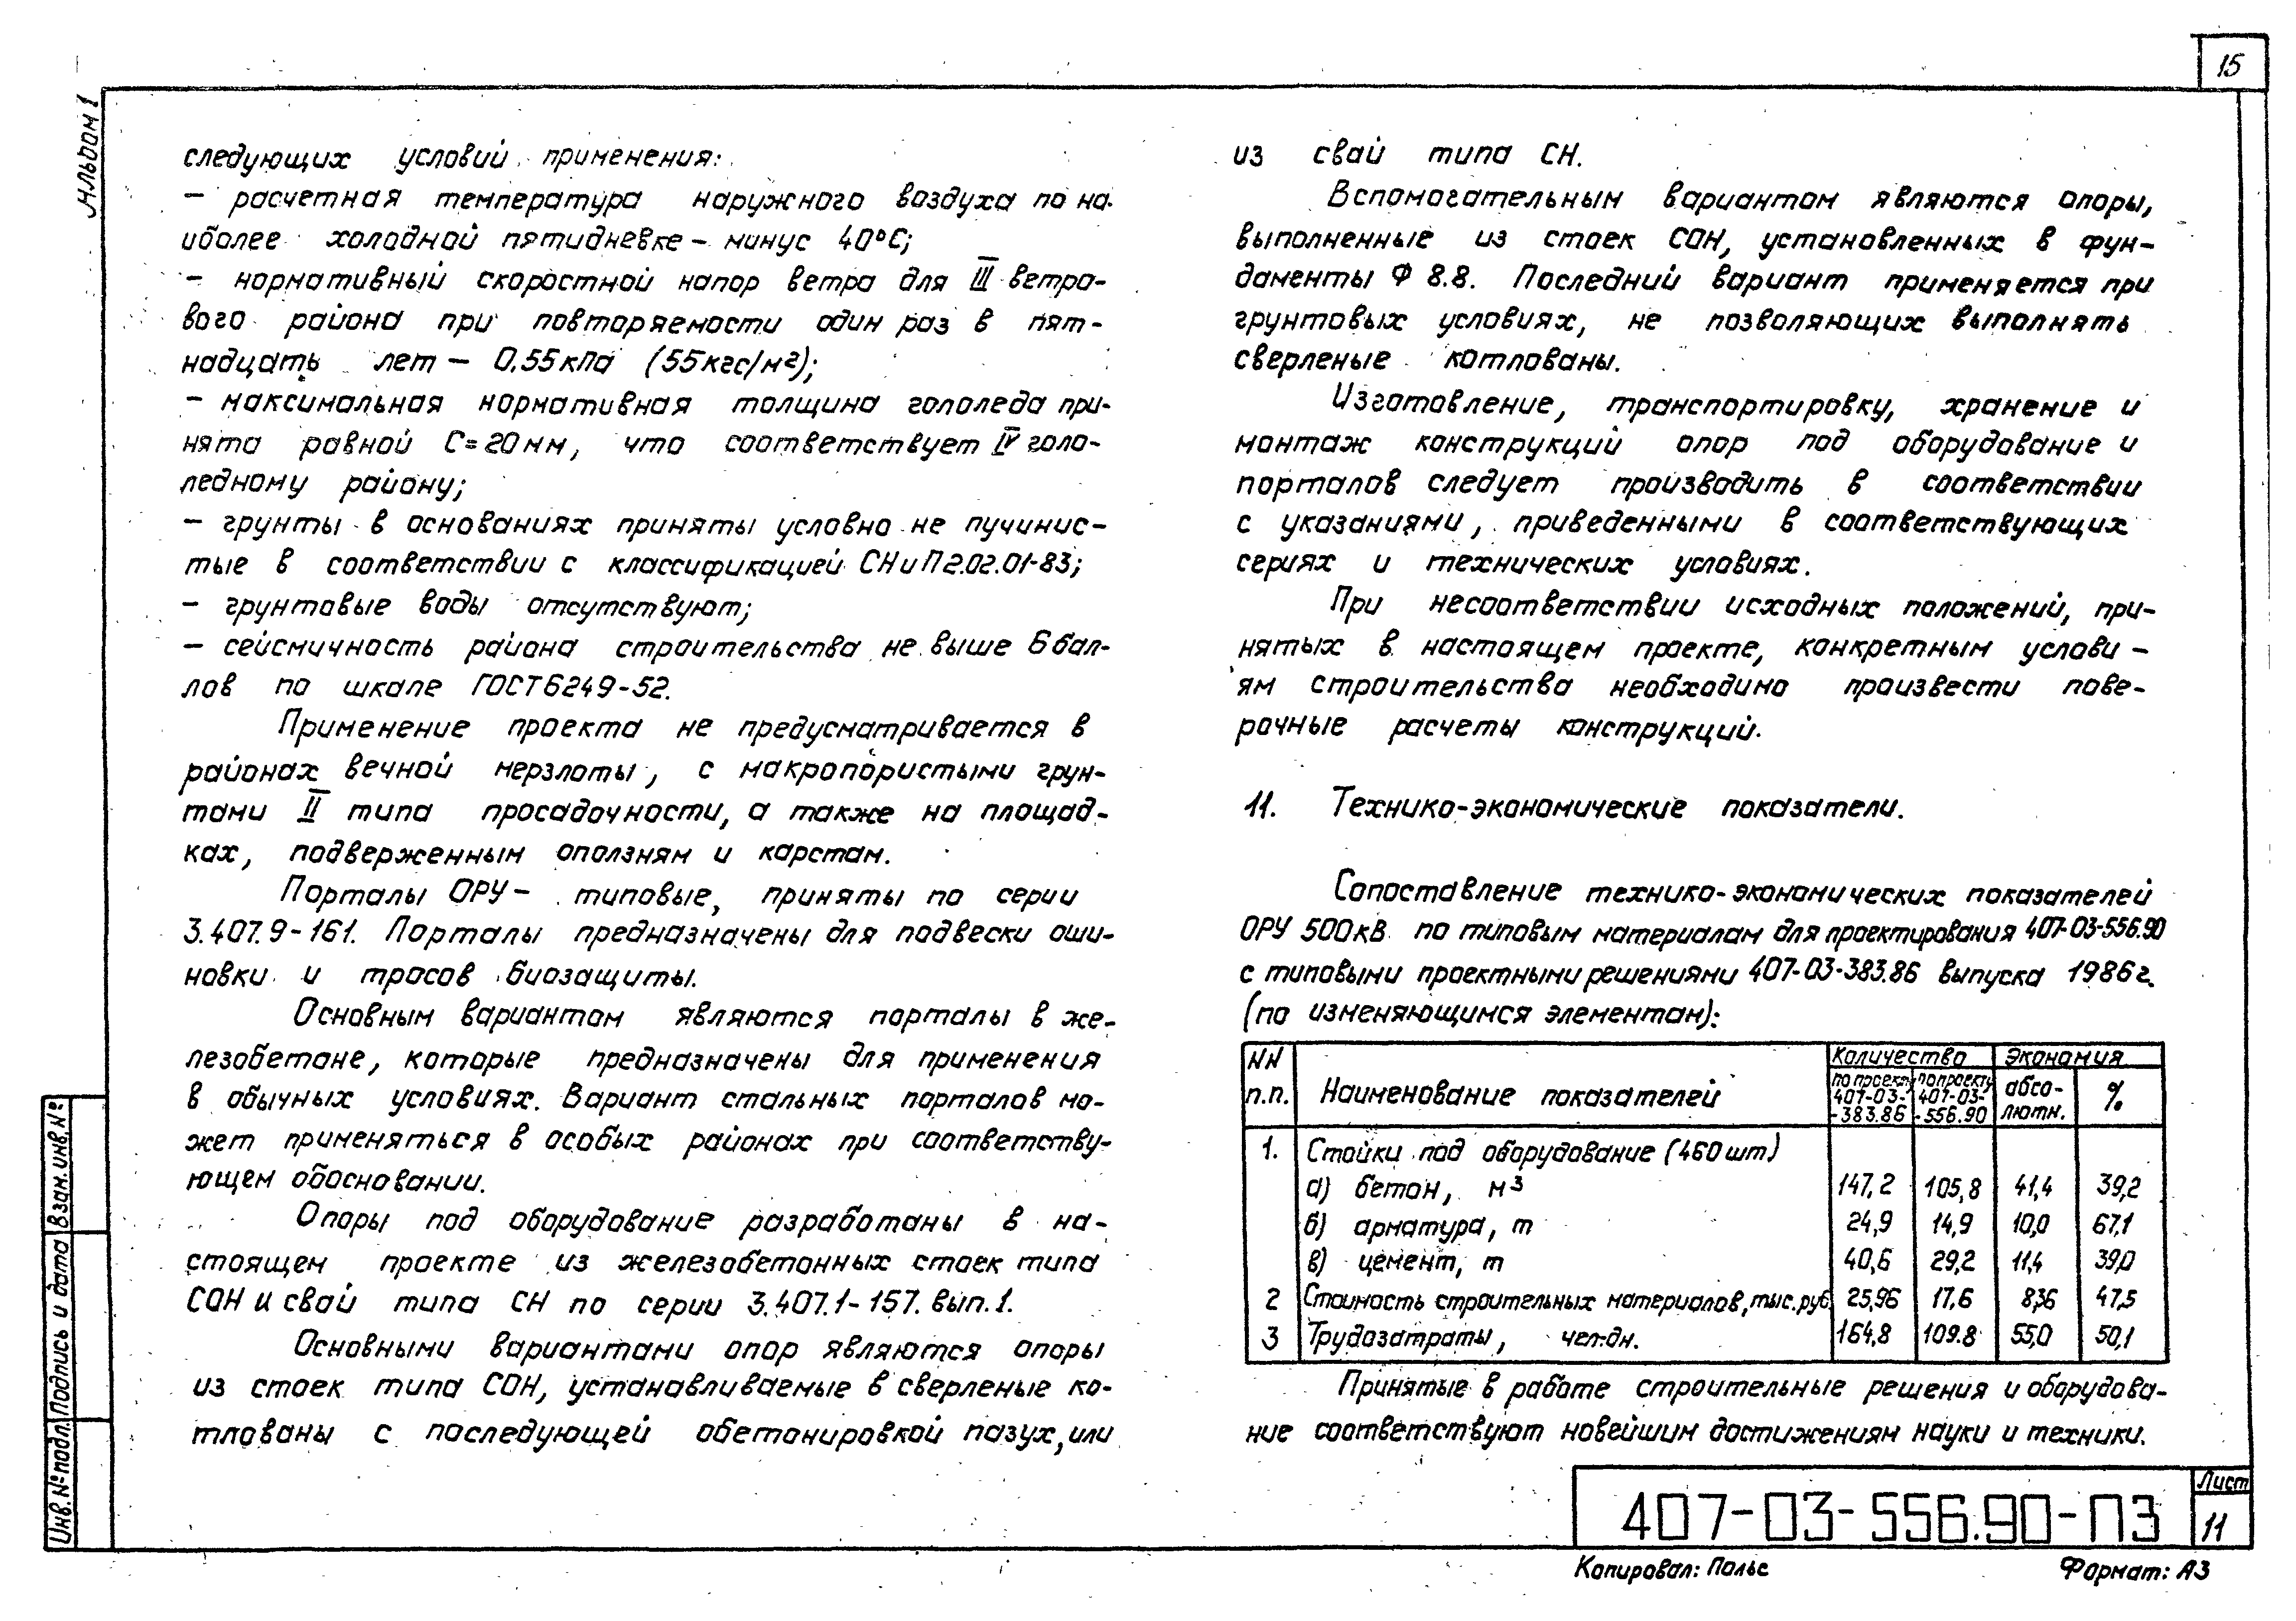 15
Альбом 1
следующих условий применения:
– расчетная температура наружного воздуха по на-
иболее холодной пятидневке – минус 40°С;
– нормативный скоростной напор ветра для III ветро-
вого района при повторяемости один раз в пят-
надцать лет – 0,55 кПа (55 кгс/м²);
– максимальная нормативная толщина гололеда при-
нята равной С=20 мм, что соответствует IV голо-
ледному району;
– грунты в основаниях приняты условно не пучинис-
тые в соответствии с классификацией СНиП 2.02.01-83;
– грунтовые воды отсутствуют;
– сейсмичность района строительства не выше 6 бал-
лов по шкале ГОСТ 6249-52.
Применение проекта не предусматривается в
районах вечной мерзлоты, с макропористыми грун-
тами II типа просадочности, а также на площад-
ках, подверженным оползням и карстам.
Порталы ОРУ – типовые, приняты по серии
3.407.9-161. Порталы предназначены для подвески оши-
новки и тросов биозащиты.
Основным вариантом являются порталы в же-
лезобетоне, которые предназначены для применения
в обычных условиях. Вариант стальных порталов мо-
жет применяться в особых районах при соответству-
ющем обосновании.
Опоры под оборудование разработаны в на-
стоящем проекте из железобетонных стоек типа
СОН и свай типа СН по серии 3.407.1-157. вып.1.
Основными вариантами опор являются опоры
из стоек типа СОН, устанавливаемые в сверленые ко-
тлованы с последующей обетонировкой пазух, или
из свай типа СН.
Вспомогательным вариантом являются опоры,
выполненные из стоек СОН, установленных в фун-
даменты Ф 8.8. Последний вариант применяется при
грунтовых условиях, не позволяющих выполнять
сверленые котлованы.
Изготовление, транспортировку, хранение и
монтаж конструкций опор под оборудование и
порталов следует производить в соответствии
с указаниями, приведенными в соответствующих
сериях и технических условиях.
При несоответствии исходных положений, при-
нятых в настоящем проекте, конкретным услови-
ям строительства необходимо произвести пове-
рочные расчеты конструкций.
11. Технико-экономические показатели.
Сопоставление технико-экономических показателей
ОРУ 500 кВ по типовым материалам для проектирования 407-03-556.90
с типовыми проектными решениями 407-03-383.86 выпуска 1986 г.
(по изменяющимся элементам):
NN п.п. Наименование показателей Количество Экономия
по проекту 407-03-383.86 по проекту 407-03-556.90 абсо-лютн. %
1. Стойки под оборудование (460 шт)
а) бетон, м³ 147,2 105,8 41,4 39,2
б) арматура, т 24,9 14,9 10,0 67,1
в) цемент, т 40,6 29,2 11,4 39,0
2 Стоимость строительных материалов, тыс. руб. 25,96 17,6 8,36 47,5
3 Трудозатраты, чел-дн. 164,8 109.8 55,0 50,1
Принятые в работе строительные решения и оборудова-
ние соответствуют новейшим достижениям науки и техники.
Взам. инв. №
Подпись и дата
Инв. № подл.
407-03-556.90-ПЗ
Лист
11
Копировал: Полье
Формат: А3